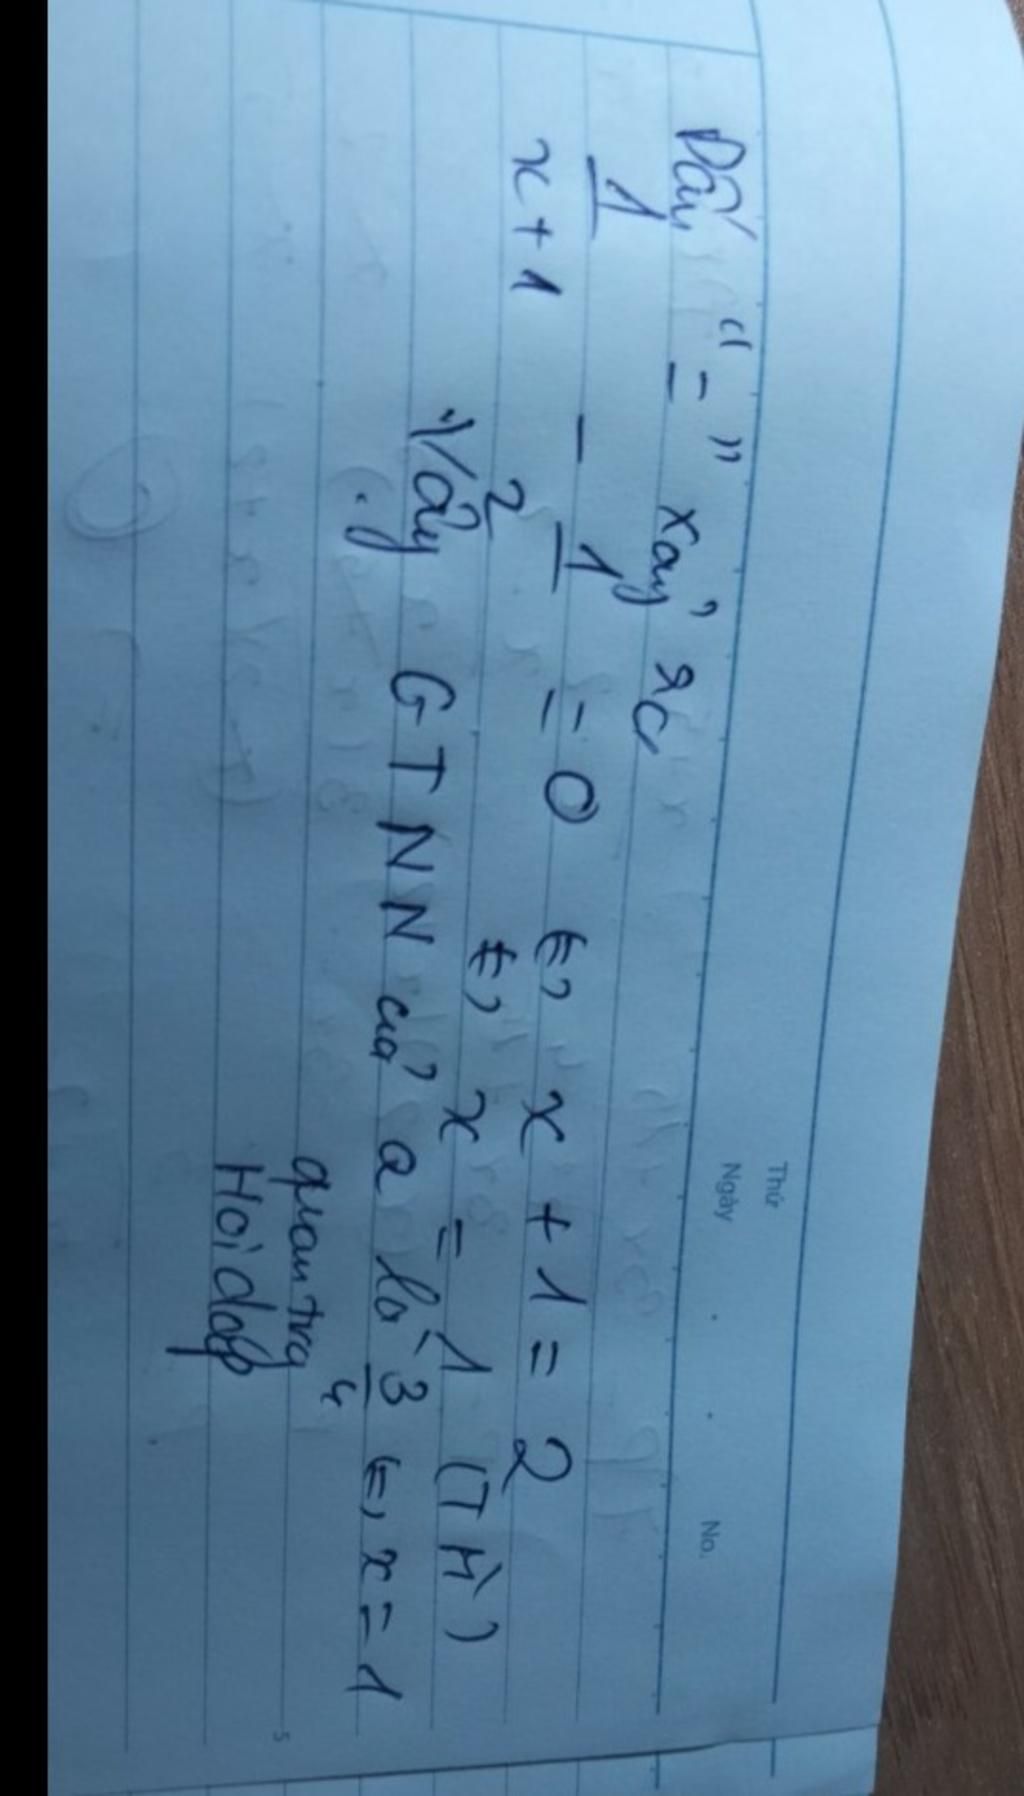 Thứ
Ngày No.
Dấu "=" xảy ra
1/(x+1) - 1/2 = 0 <=> x + 1 = 2
<=> x = 1 (TM)
Vậy GTNN của Q là 3/4 <=> x = 1
quantrg
Hoidap
5